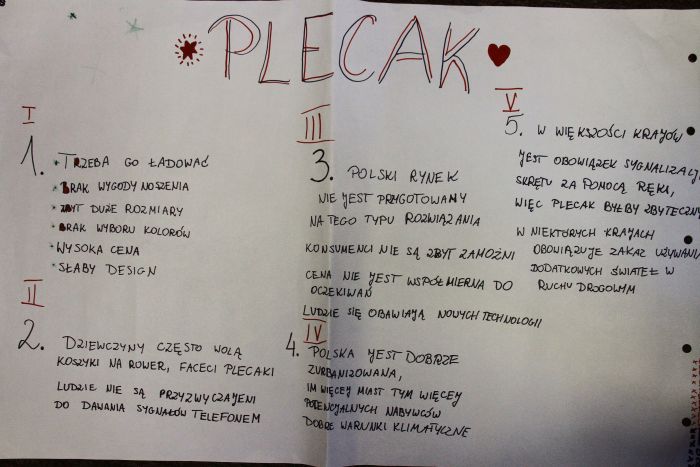 PLECAK
I
1. * TRZEBA GO ŁADOWAĆ
* BRAK WYGODY NOSZENIA
* ZBYT DUŻE ROZMIARY
* BRAK WYBORU KOLORÓW
* WYSOKA CENA
* SŁABY DESIGN
II
2. DZIEWCZYNY CZĘSTO WOLĄ
KOSZYKI NA ROWER, FACECI PLECAKI
LUDZIE NIE SĄ PRZYZWYCZAJENI
DO DAWANIA SYGNAŁÓW TELEFONEM
III
3. POLSKI RYNEK
NIE JEST PRZYGOTOWANY
NA TEGO TYPU ROZWIĄZANIA
KONSUMENCI NIE SĄ ZBYT ZAMOŻNI
CENA NIE JEST WSPÓŁMIERNA DO
OCZEKIWAŃ
LUDZIE SIĘ OBAWIAJĄ NOWYCH TECHNOLOGII
IV
4. POLSKA JEST DOBRZE
ZURBANIZOWANA,
IM WIĘCEJ MIAST TYM WIĘCEJ
POTENCJALNYCH NABYWCÓW
DOBRE WARUNKI KLIMATYCZNE
V
5. W WIĘKSZOŚCI KRAJÓW
JEST OBOWIĄZEK SYGNALIZACJI
SKRĘTU ZA POMOCĄ RĘKI,
WIĘC PLECAK BYŁBY ZBYTECZNY
W NIEKTÓRYCH KRAJACH
OBOWIĄZUJE ZAKAZ UŻYWANIA
DODATKOWYCH ŚWIATEŁ W
RUCHU DROGOWYM